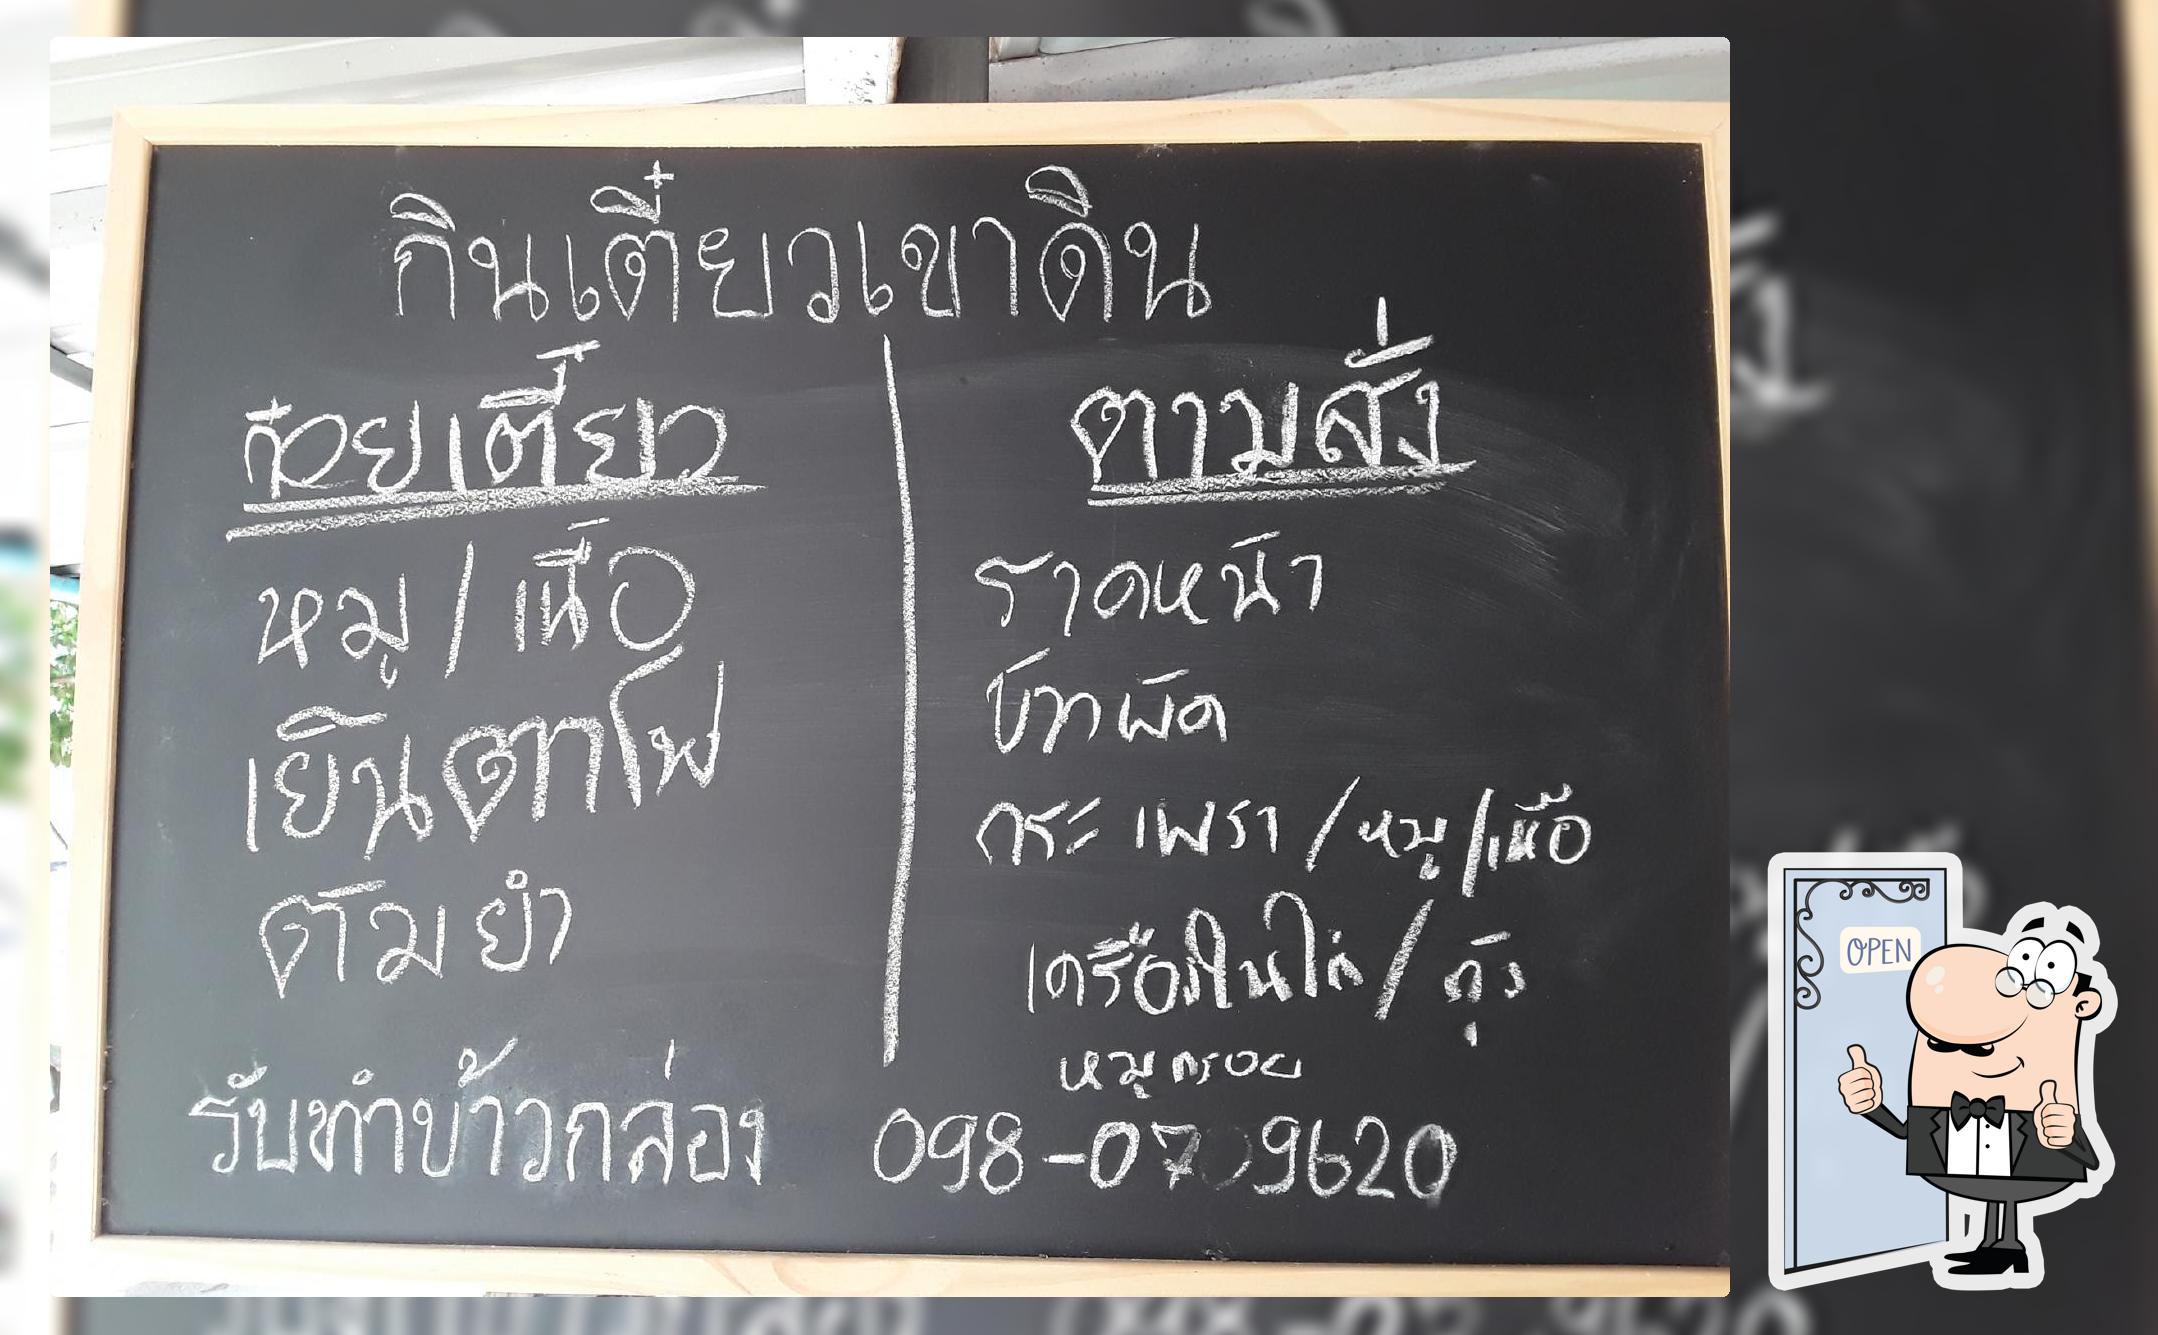 กินเตี๋ยวเขาดิน
ก๋วยเตี๋ยว
หมู / เนื้อ
เย็นตาโฟ
ต้มยำ
ตามสั่ง
ราดหน้า
ข้าวผัด
กระเพรา / หมู / เนื้อ
เครื่องในไก่ / กุ้ง
หมูกรอบ
รับทำข้าวกล่อง 098-0709620
OPEN